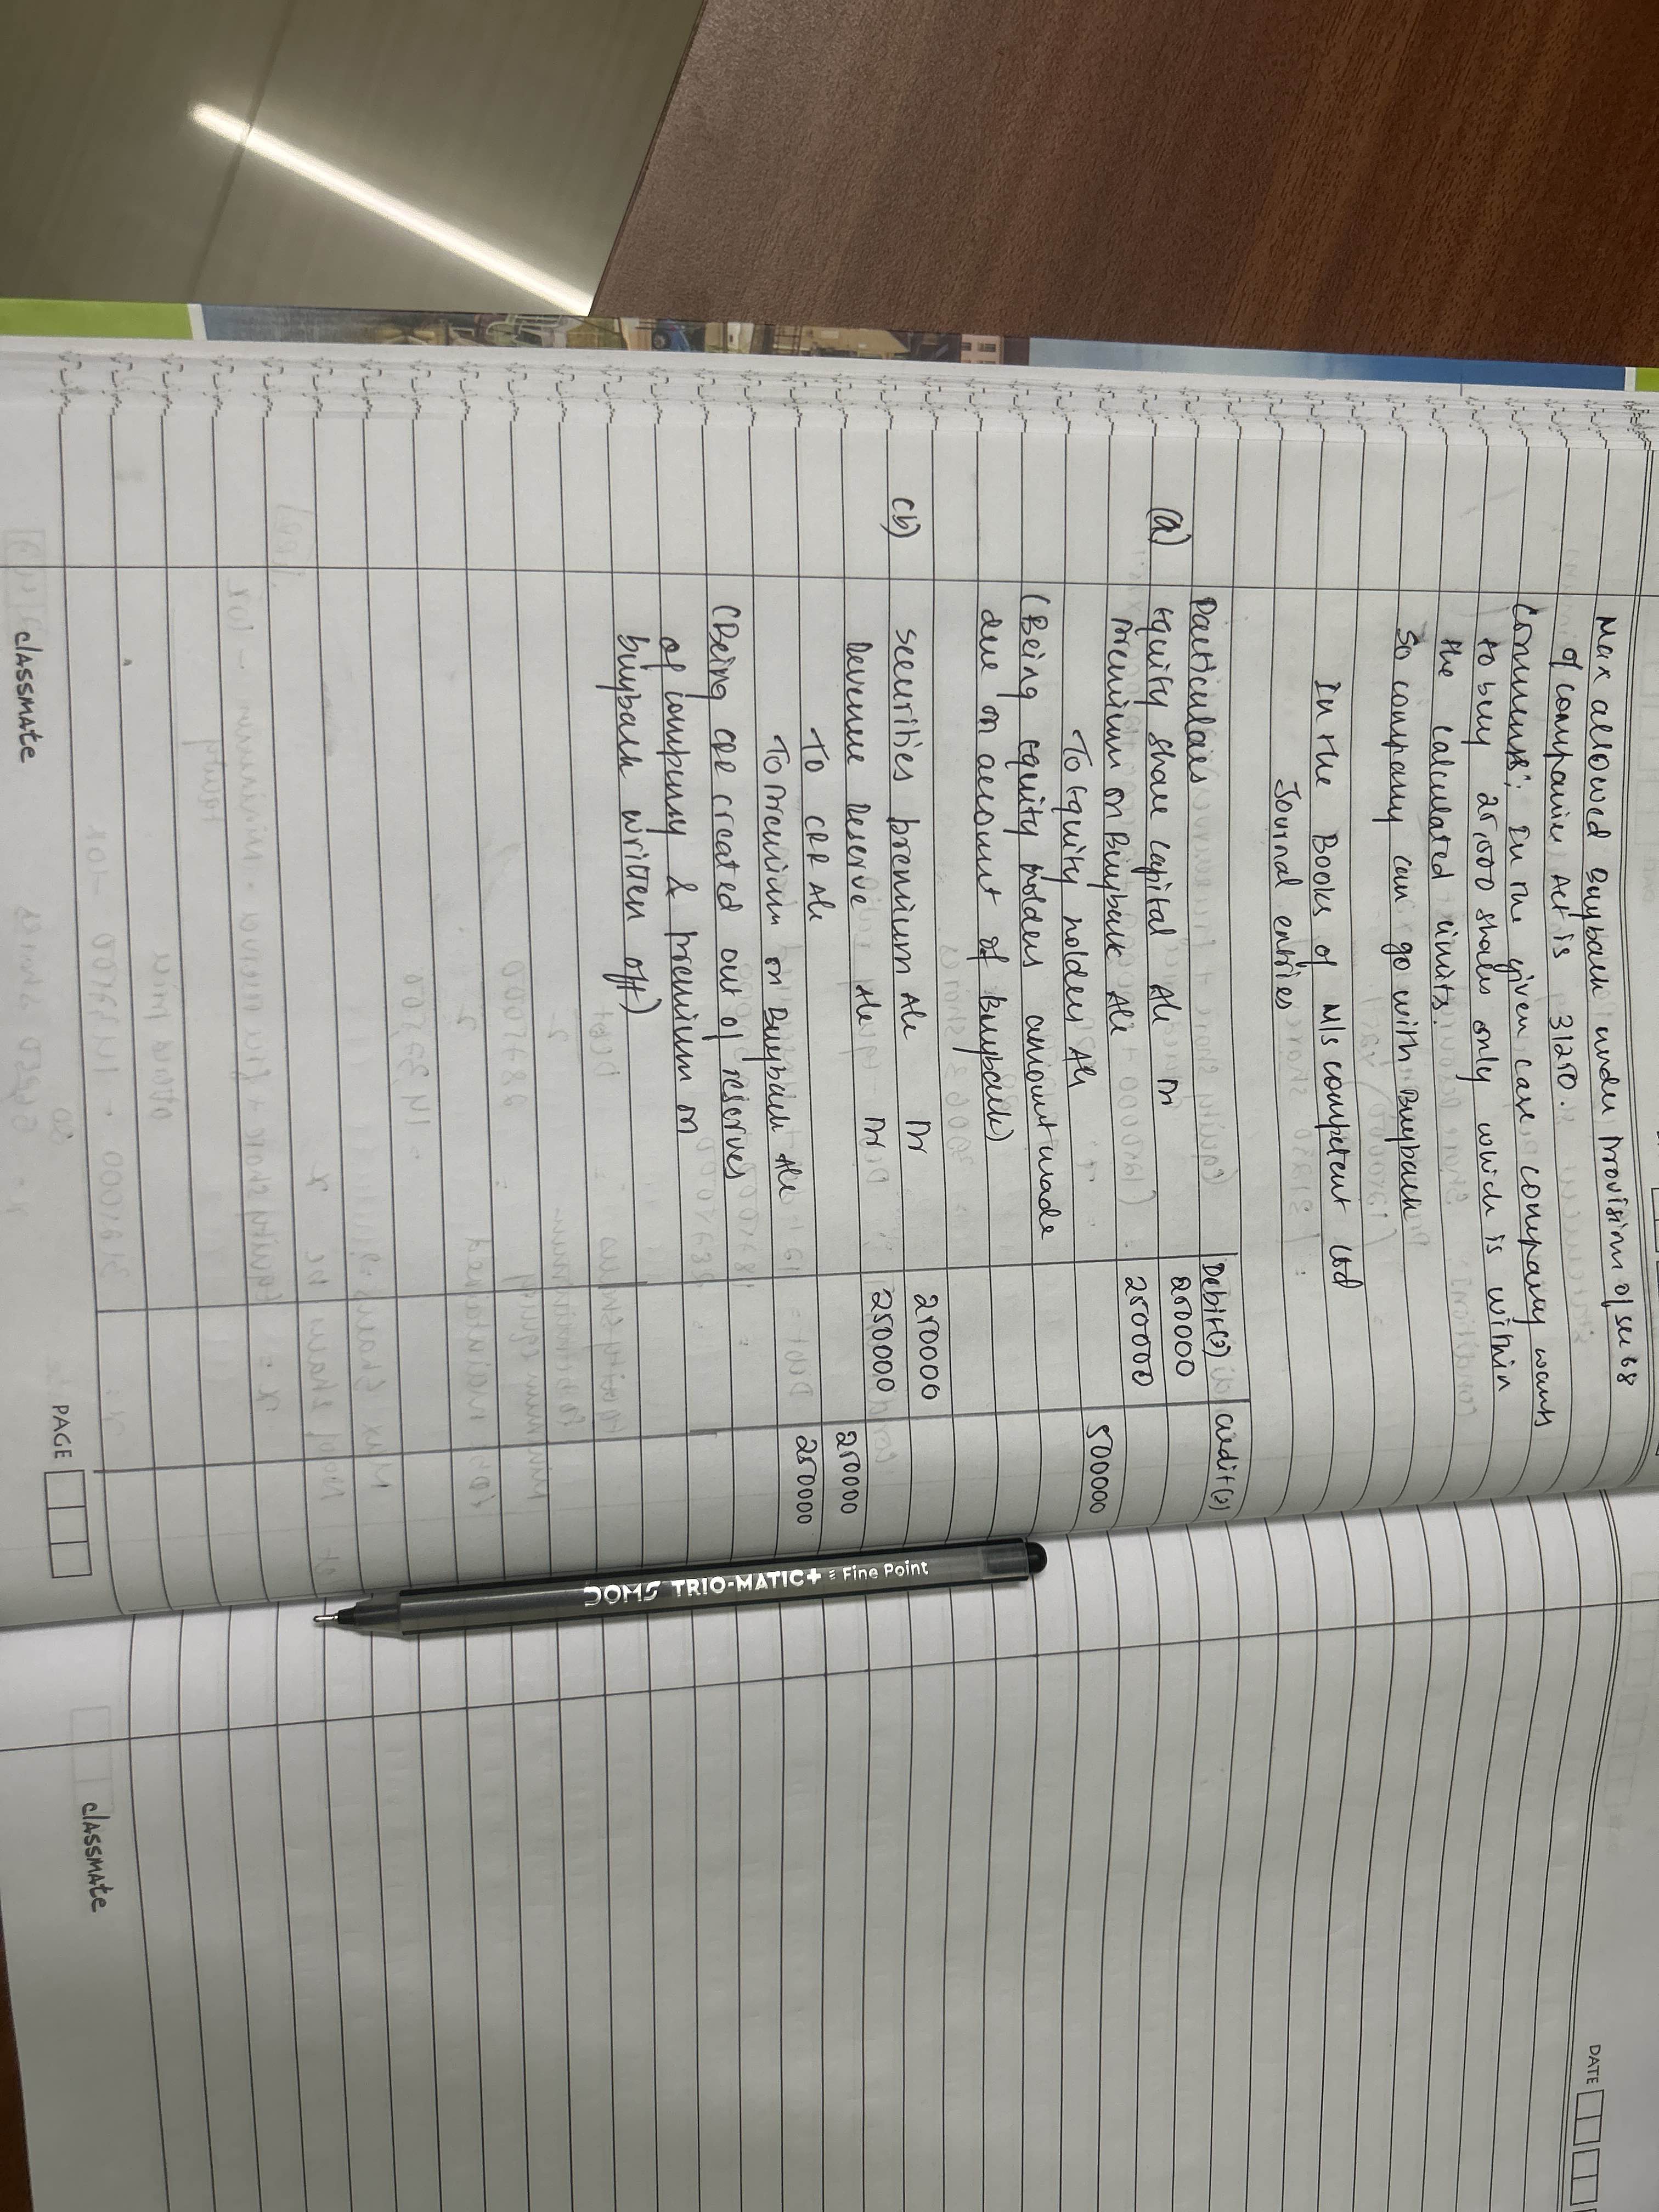 Max allowed Buyback under Provision of sec 68
of companies Act is 31250.
Comments: In the given case company wants
to buy 25,000 shares only which is within
the calculated limits.
So company can go with Buyback
In the Books of M/s competent Ltd
Journal entries
Particulars Debit(₹) credit(₹)
(a) Equity share capital A/c Dr 250000
Premium on Buyback A/c 250000
To Equity holders A/c 500000
(Being equity holders amount made
due on account of Buyback)
(b) securities premium A/c Dr 250000
Revenue Reserve A/c Dr 250000
To CRR A/c 250000
To Premium on Buyback A/c 250000
(Being CRR created out of reserves
of company & premium on
buyback written off)
classmate
PAGE
DOMS TRIO-MATIC+ Fine Point
DATE
classmate